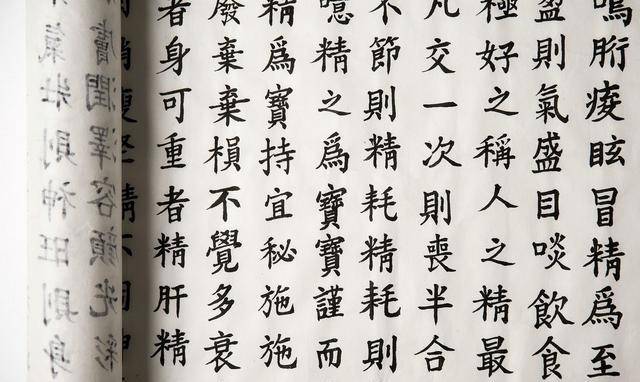 鳴胻痠眩冒精爲至
盈則氣盛目啖飲食
極好之稱人之精最
凡交一次則喪半合
不節則精耗精耗則
噫精之爲寶寶謹而
精爲寶持宜秘施施
廢棄棄損不覺多衰
者身可重者精肝精
膚潤澤容顔光彩
氣壯則神旺則身